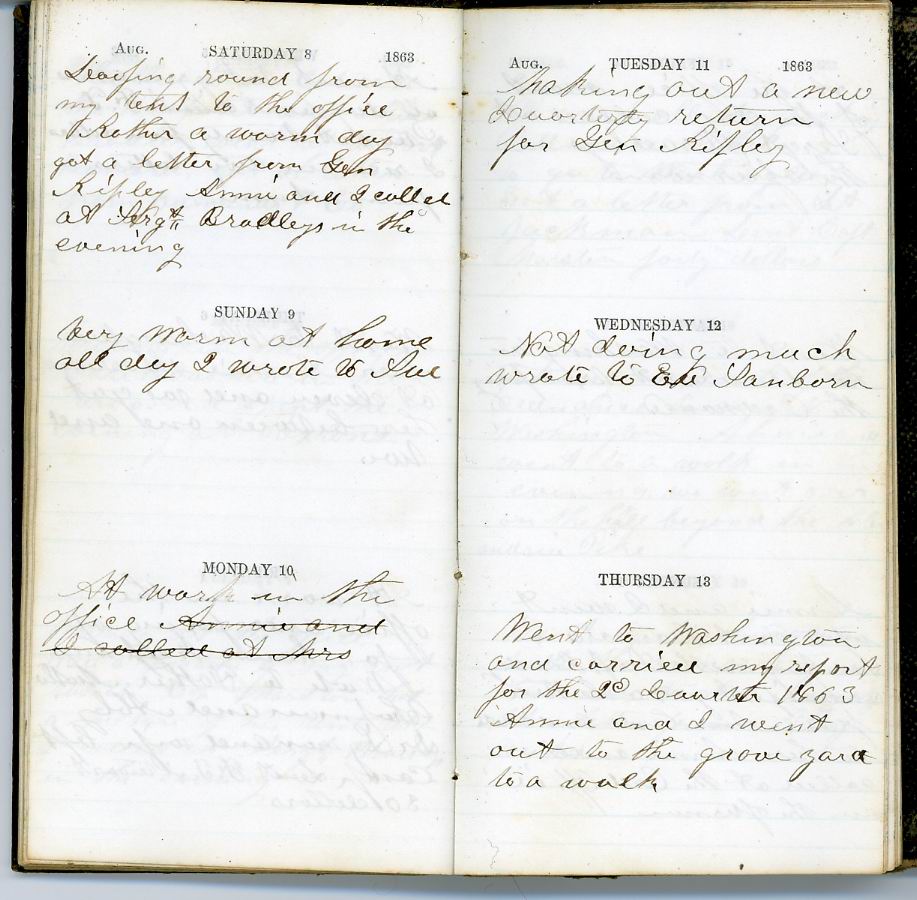 AUG. SATURDAY 8 1863
Loafing round from
my tent to the office
Rather a worm day
got a letter from Gen
Ripley Annie and I called
at Srgt Bradleys in the
evening
SUNDAY 9
Very worm at home
all day I wrote to Sue
MONDAY 10
At work in the
office Annie and
I called at Mrs
AUG. TUESDAY 11 1863
Making out a new
Quarterly return
for Gen Ripley
WEDNESDAY 12
Not doing much
wrote to Sanborn
THURSDAY 13
Went to Washington
and carried my report
for the 2d Quarter 1863
Annie and I went
out to the grove yard
to a walk